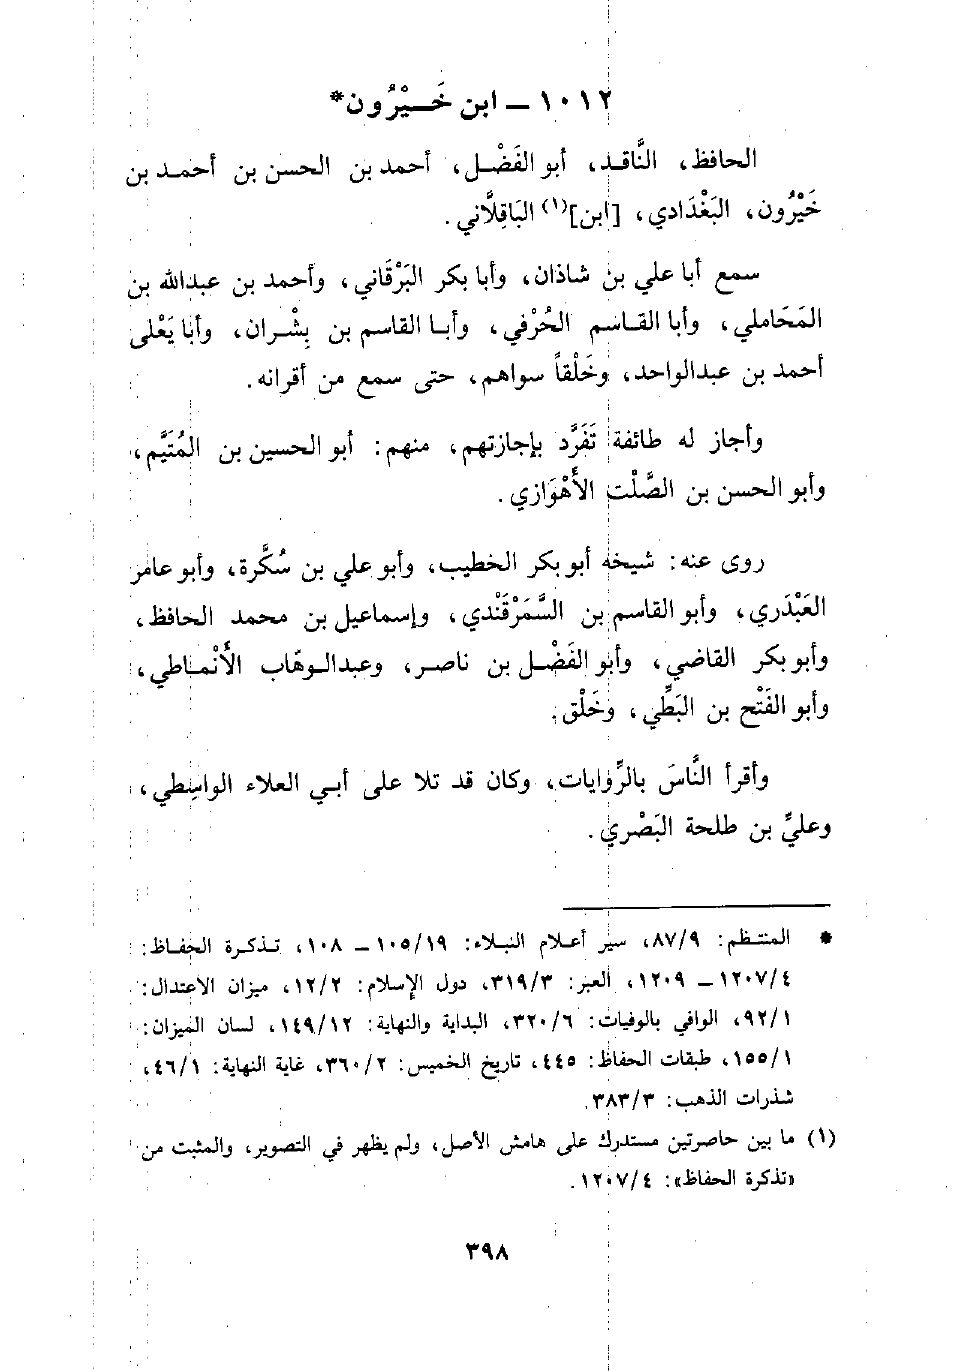 ١٠١٢ ـ ابن خَـيْرُون*
الحافظ، النَّاقـد، أبو الفَضْـل، أحمد بن الحسن بن أحمـد بن
خَيْرُون، البَغْدَادي، [ابن](١) البَاقِلَّاني.
سمع أبا علي بن شاذان، وأبا بكر البَرْقَاني، وأحمد بن عبدالله بن
المَحَاملي، وأبا القـاسم الحُرْفي، وأبـا القاسم بن بِشْـران، وأبا يَعْلى
أحمد بن عبدالواحد، وخَلْقاً سواهم، حتى سمع من أقرانه.
وأجاز له طائفة تَفَرَّد بإجازتهم، منهم: أبو الحسين بن المُتَيَّم،
وأبو الحسن بن الصَّلْت الأَهْوَازي.
روى عنه: شيخه أبو بكر الخطيب، وأبو علي بن سُكَّرة، وأبو عامر
العَبْدَري، وأبو القاسم بن السَّمَرْقَندي، وإسماعيل بن محمد الحافظ،
وأبو بكر القاضي، وأبو الفَضْـل بن ناصـر، وعبدالـوهَّاب الأَنْمـاطي،
وأبو الفَتْح بن البَطِّي، وخَلْق.
وأقرأ النَّاسَ بالرِّوايات، وكان قد تلا على أبـي العلاء الواسِطي،
وعليِّ بن طلحة البَصْري.
* المنتظم: ٨٧/٩، سير أعـلام النبـلاء: ١٠٥/١٩ ـ ١٠٨، تـذكـرة الحفـاظ:
١٢٠٧/٤ ـ ١٢٠٩، العبر: ٣١٩/٣، دول الإسلام: ١٢/٢، ميزان الاعتدال:
٩٢/١، الوافي بالوفيات: ٣٢٠/٦، البداية والنهاية: ١٤٩/١٢، لسان الميزان:
١٥٥/١، طبقات الحفاظ: ٤٤٥، تاريخ الخميس: ٣٦٠/٢، غاية النهاية: ٤٦/١،
شذرات الذهب: ٣٨٣/٣.
(١) ما بين حاصرتين مستدرك على هامش الأصل، ولم يظهر في التصوير، والمثبت من
«تذكرة الحفاظ»: ١٢٠٧/٤.
٣٩٨